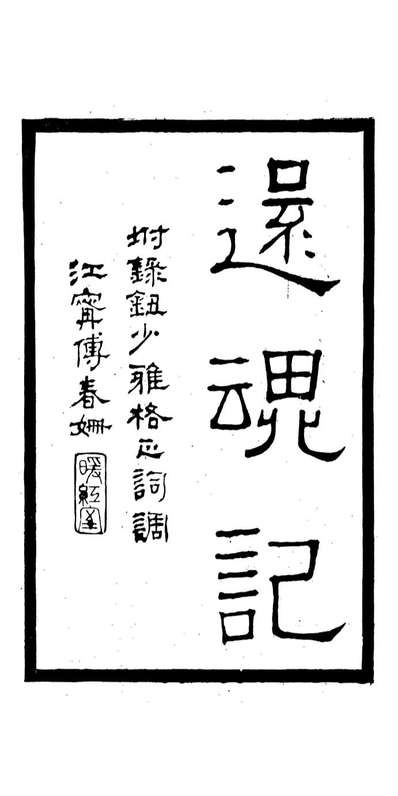 還魂記
坿錄鈕少雅格正詞調
江寧傅春姍
暖紅室